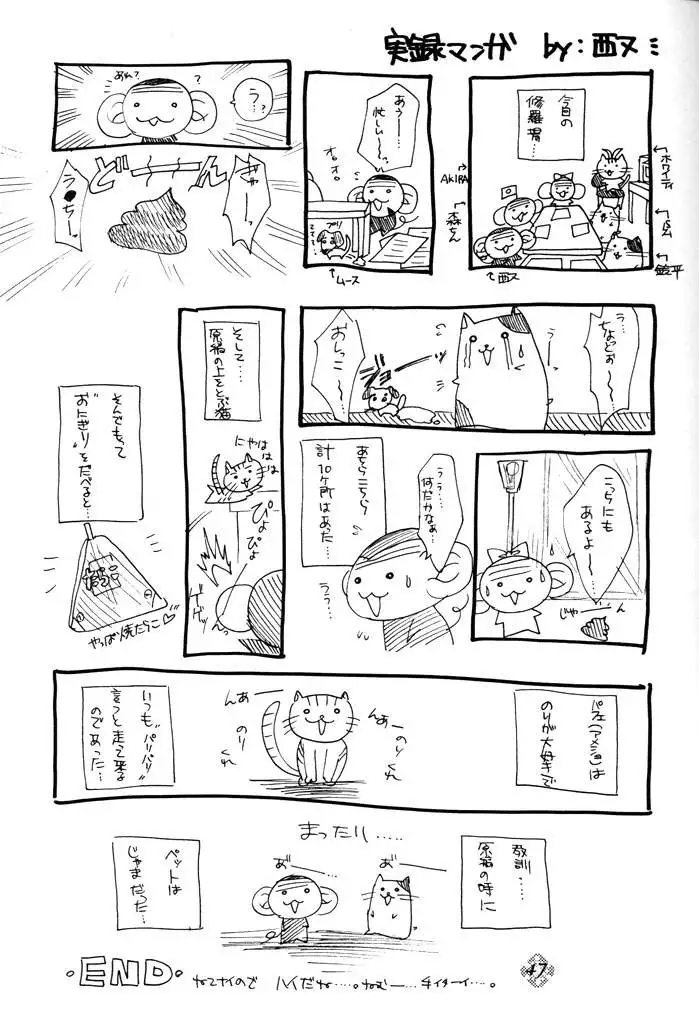 実録マンガ by:西ヌミ
今日の
修羅場…
ホワイティ
AKIRA
森ちん
西ヌ
あう——
忙しい〜〜っ
オロオロ
プリ
ムース
あれ?
?
う…?
ぎゃーっ
どーーん
う●ちーっ
う…
ちなどぉ〜
おしっこ〜
ジョー
こっちにも
あるよ〜
じゃーん
うう…
何だかなぁ…
あちらこちら
計10ヶ所はあった…
うっ…
そして…
原稿の上をとぶ猫
にゃはははは
ぴょ
ぴょ
ゲゲッ
そんでもって
“おにぎり”をたべると…
たらこ
やっぱ焼たらこ♡
パフェ(アメショ)は
のりが大好きで
んあー
のりくれ
んあー
のりくれ
いつも“パリパリ”
言うと走って来る
のであった…
まったり……
教訓……
原稿の時に
ペットは
じゃまだった…
あ゛ー
あ゛ー
・END・
ねてナイので ハイだね….ねむー….手イターイ….。
47